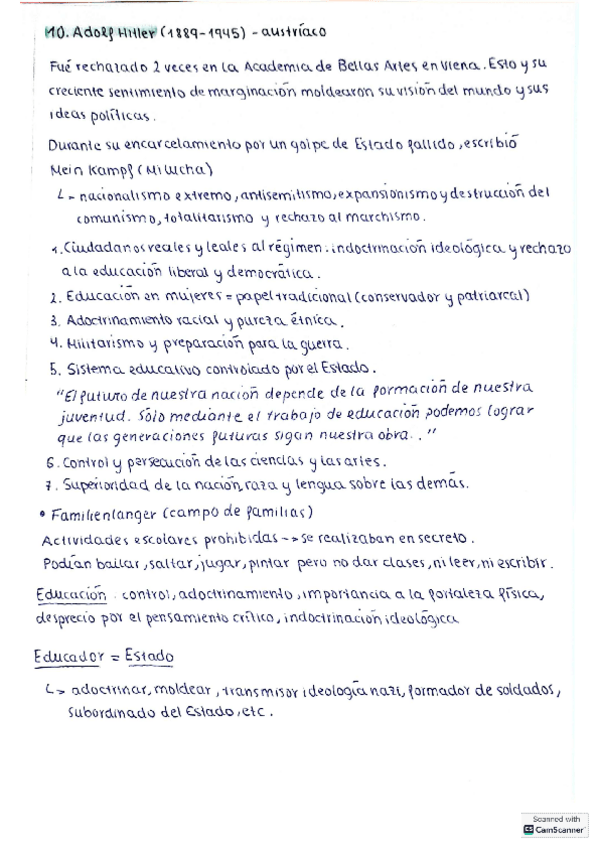 10. Adolf Hitler (1889-1945) - austríaco
Fué rechazado 2 veces en la Academia de Bellas Artes en Viena. Esto y su
creciente sentimiento de marginación moldearon su visión del mundo y sus
ideas políticas.
Durante su encarcelamiento por un golpe de Estado fallido, escribió
Mein Kampf (Mi lucha)
↳ nacionalismo extremo, antisemitismo, expansionismo y destrucción del
comunismo, totalitarismo y rechazo al marchismo.
1. Ciudadanos reales y leales al régimen: indoctrinación ideológica y rechazo
a la educación liberal y democrática.
2. Educación en mujeres = papel tradicional (conservador y patriarcal)
3. Adoctrinamiento racial y pureza étnica.
4. Militarismo y preparación para la guerra.
5. Sistema educativo controlado por el Estado.
"El futuro de nuestra nación depende de la formación de nuestra
juventud. Sólo mediante el trabajo de educación podemos lograr
que las generaciones futuras sigan nuestra obra.."
6. Control y persecución de las ciencias y las artes.
7. Superioridad de la nación, raza y lengua sobre las demás.
• Familienlanger (campo de familias)
Actividades escolares prohibidas --> se realizaban en secreto.
Podían bailar, saltar, jugar, pintar pero no dar clases, ni leer, ni escribir.
Educación: control, adoctrinamiento, importancia a la fortaleza física,
desprecio por el pensamiento crítico, indoctrinación ideológica
Educador = Estado
↳ adoctrinar, moldear, transmisor ideología nazi, formador de soldados,
subordinado del Estado, etc.
Scanned with
CamScanner